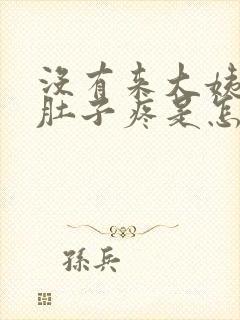 没有来大姨
肚子疼是怎
孫兵